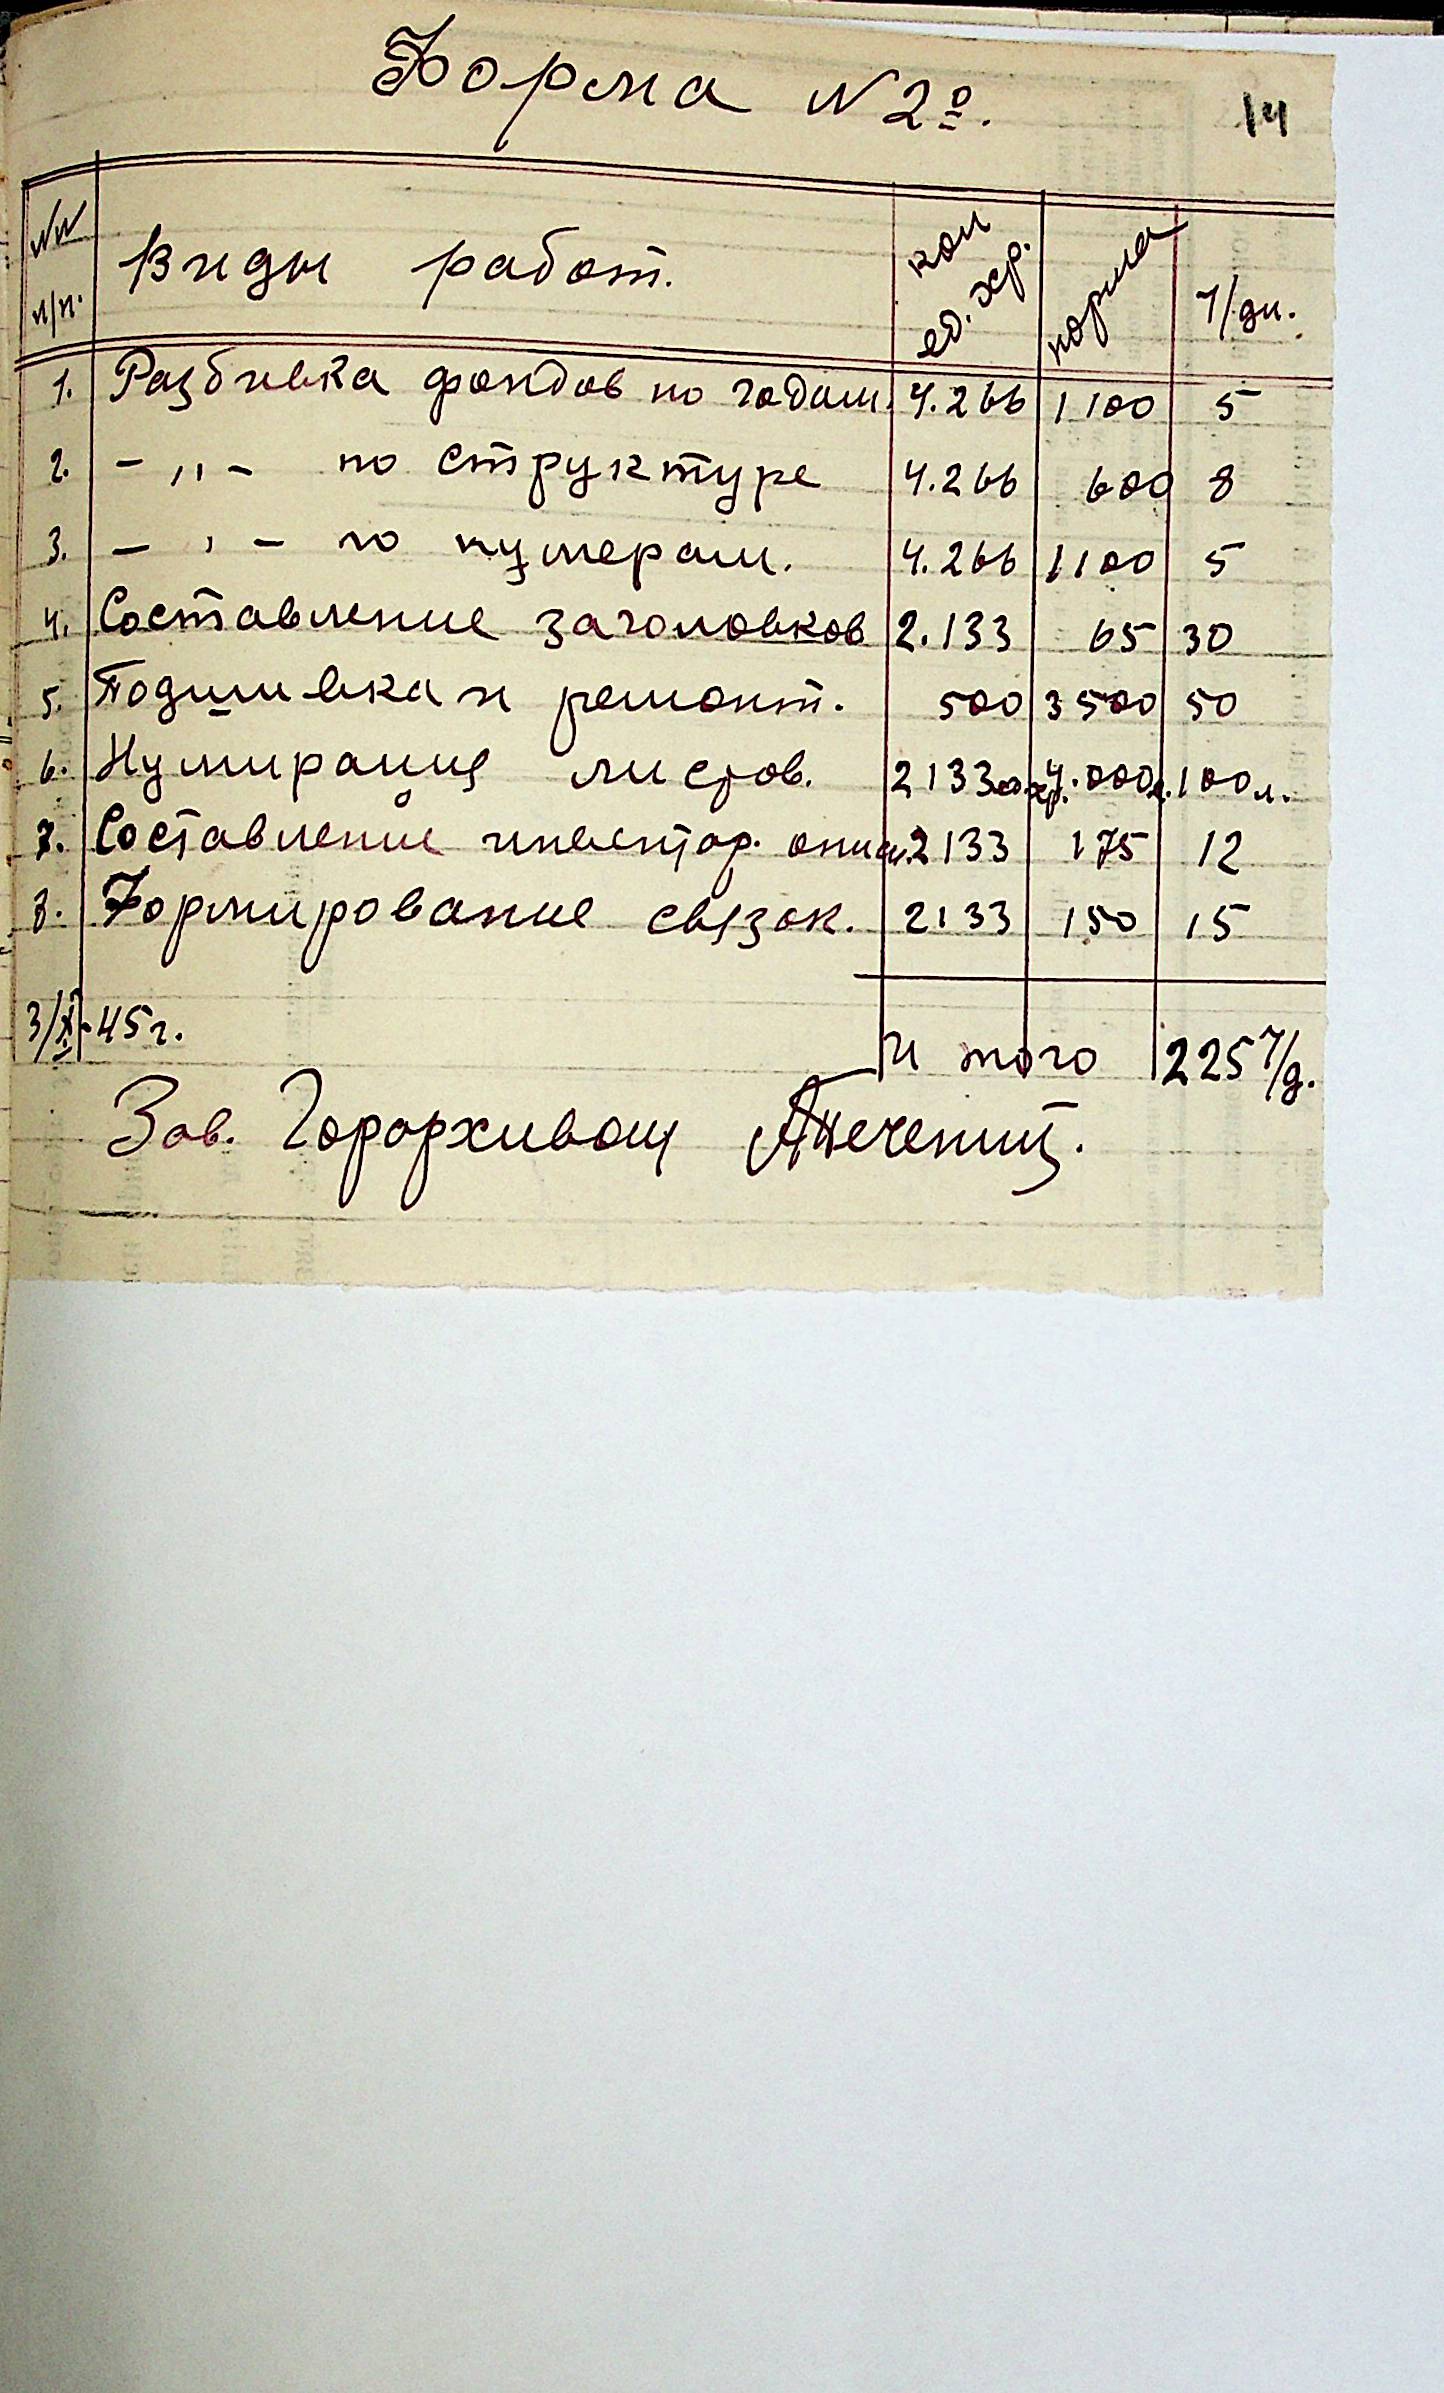 Форма N 2º.
14
NN п/п. Виды работ. кол ед. хр. норма ч/дн.
1. Разбивка фондов по годам. 4.266 1100 5
2. - „ - по структуре 4.266 600 8
3. - „ - по нумерам. 4.266 1100 5
4. Составление заголовков 2.133 65 30
5. Подшивка и ремонт. 500 3500 50
6. Нумирация листов. 2133 ед.хр. 4.000л. 100л.
7. Составление инвентар. опис. 2133 175 12
8. Формирование связок. 2133 150 15
3/X-45г.
И того 225 ч/д.
Зав. Горархивом